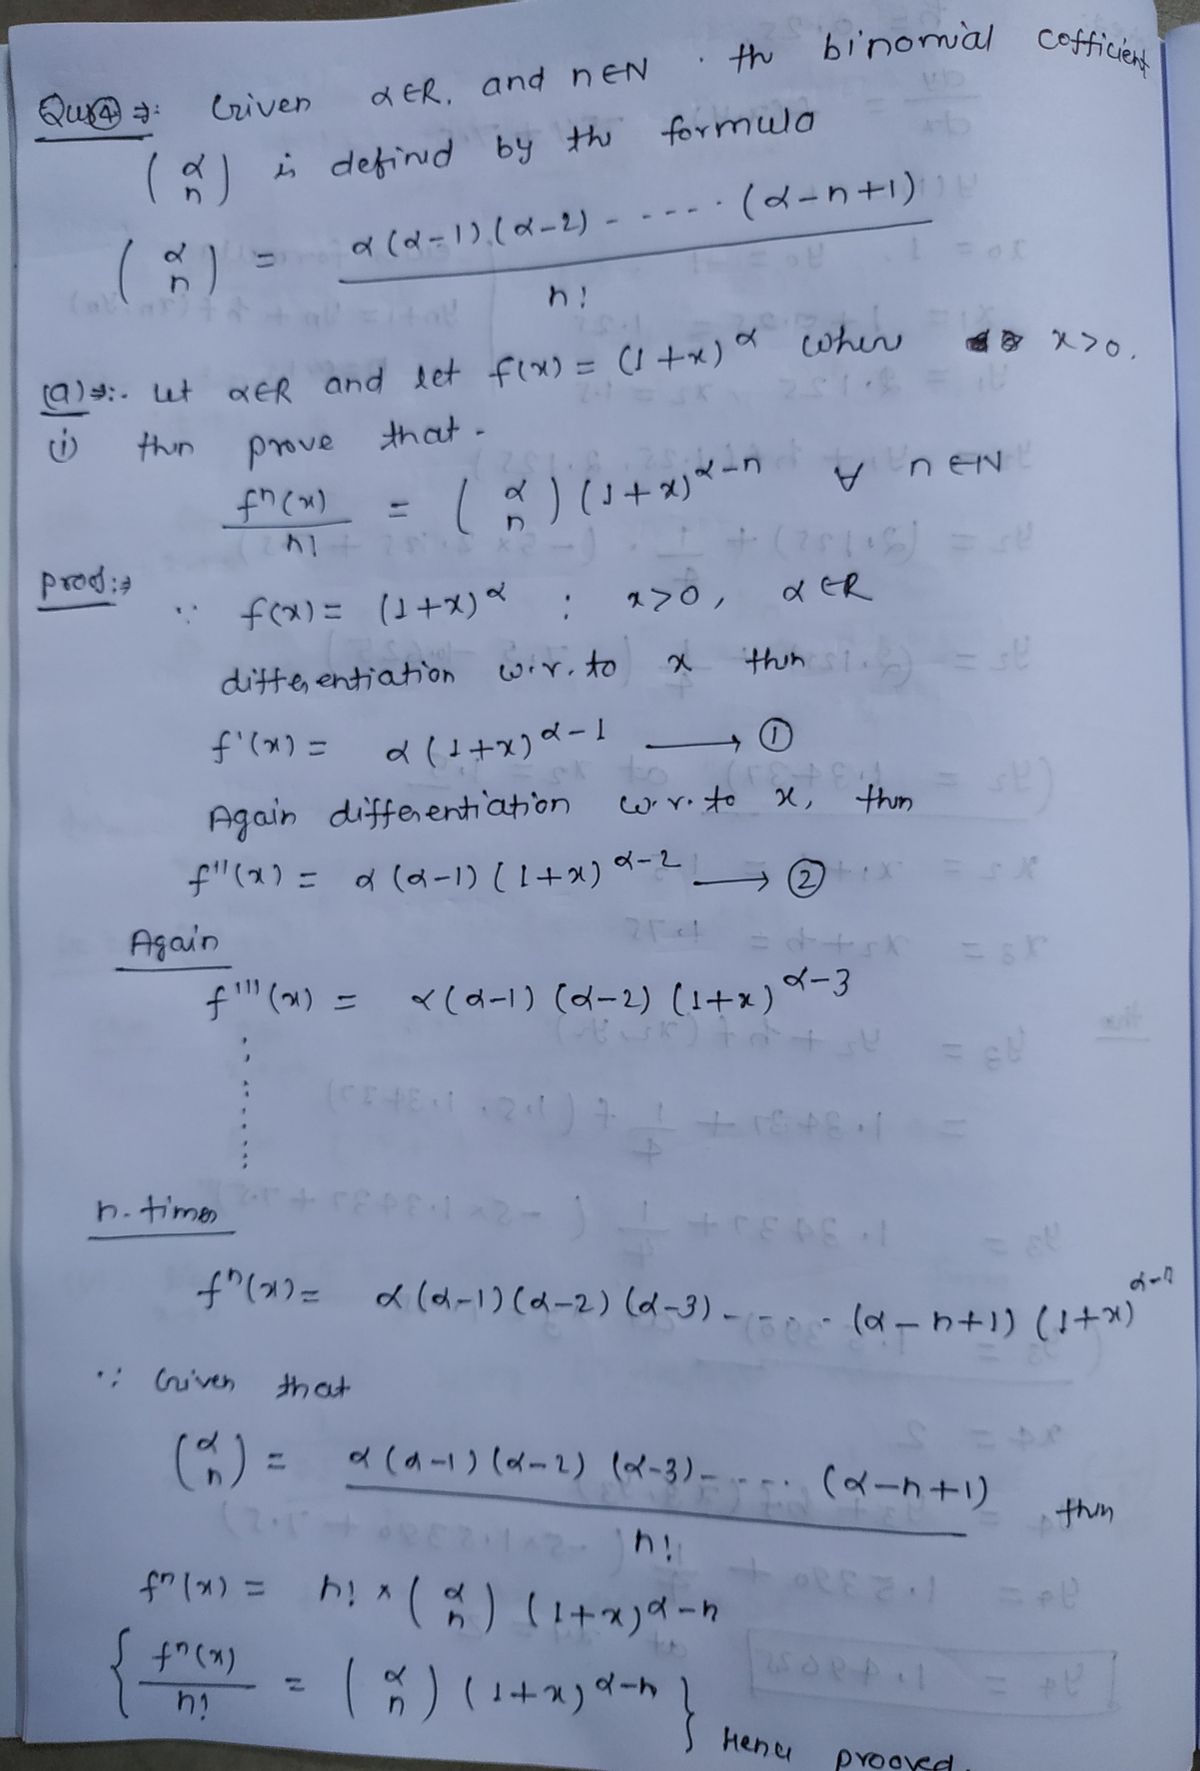 Que④ ⇒: Given α∈R, and n∈N . the binomial cofficient
(α n) is defined by the formula
(α n) = α(α-1)(α-2)------(α-n+1) / n!
(a)⇒:. Let α∈R and let f(x) = (1+x)^α where x>0.
(i) then prove that -
f^n(x) / n! = (α n) (1+x)^α-n ∀ n∈N
Proof:⇒
∵ f(x) = (1+x)^α ; x>0, α∈R
differentiation w.r.to x then
f'(x) = α(1+x)^α-1 ⟶ ①
Again differentiation w.r.to x, then
f''(x) = α(α-1)(1+x)^α-2 ⟶ ②
Again
f'''(x) = α(α-1)(α-2)(1+x)^α-3
n.times
f^n(x) = α(α-1)(α-2)(α-3)-----(α-n+1)(1+x)^α-n
∵ Given that
(α n) = α(α-1)(α-2)(α-3)-----(α-n+1) / n! then
f^n(x) = n! × (α n) (1+x)^α-n
{ f^n(x) / n! = (α n) (1+x)^α-n }
Hence prooved.